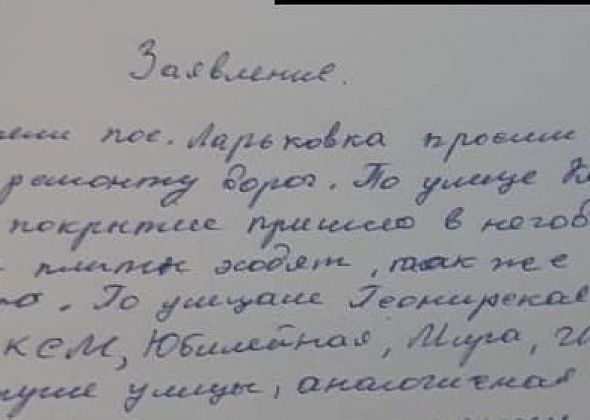 Заявление.
тели пос. Ларьковка просим
ремонту дорог. По улице
покрытие пришло в негод
плиты ходят, так же
По улицам Пионерская
КСМ, Юбилейная, Мира,
улицы, аналогичная